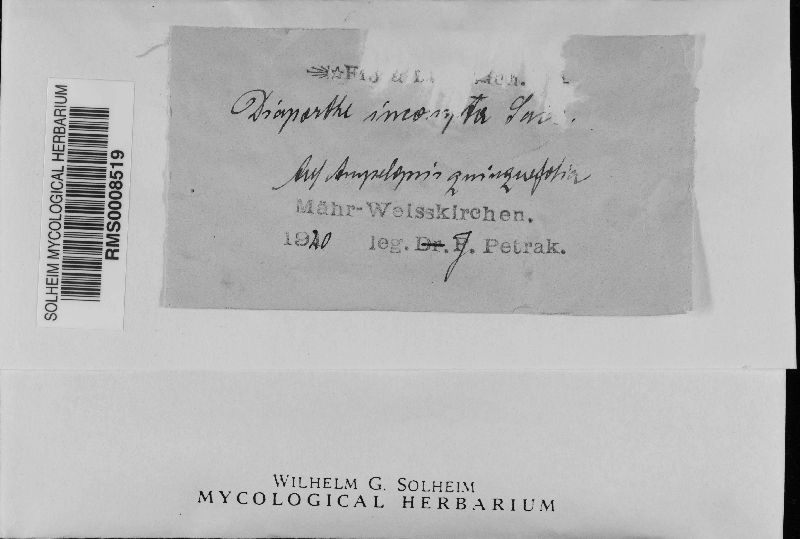 SOLHEIM MYCOLOGICAL HERBARIUM
RMS0008519
Diaporthe
Auf Ampelopsis quinquefolia
Mähr-Weisskirchen.
1920 leg. Dr. J. Petrak.
WILHELM G. SOLHEIM
MYCOLOGICAL HERBARIUM